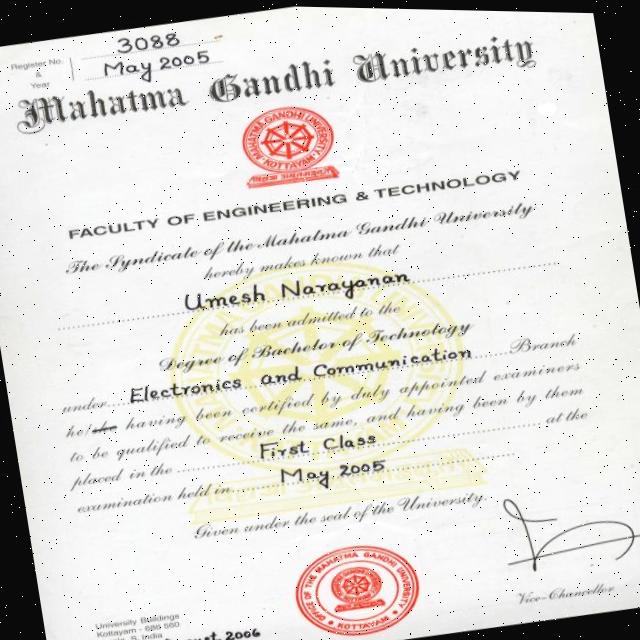 Register No. & Year
3088
May 2005
Mahatma Gandhi University
MAHATMA GANDHI UNIVERSITY
KOTTAYAM
FACULTY OF ENGINEERING & TECHNOLOGY
The Syndicate of the Mahatma Gandhi University
hereby makes known that
Umesh Narayanan
has been admitted to the
Degree of Bachelor of Technology
under Electronics and Communication Branch
he/she having been certified by duly appointed examiners
to be qualified to receive the same, and having been by them
placed in the First Class at the
examination held in May 2005
Given under the seal of the University
OFFICE OF THE MAHATMA GANDHI UNIVERSITY
KOTTAYAM
Vice-Chancellor
University Buildings
Kottayam - 686 560
S. India
2006